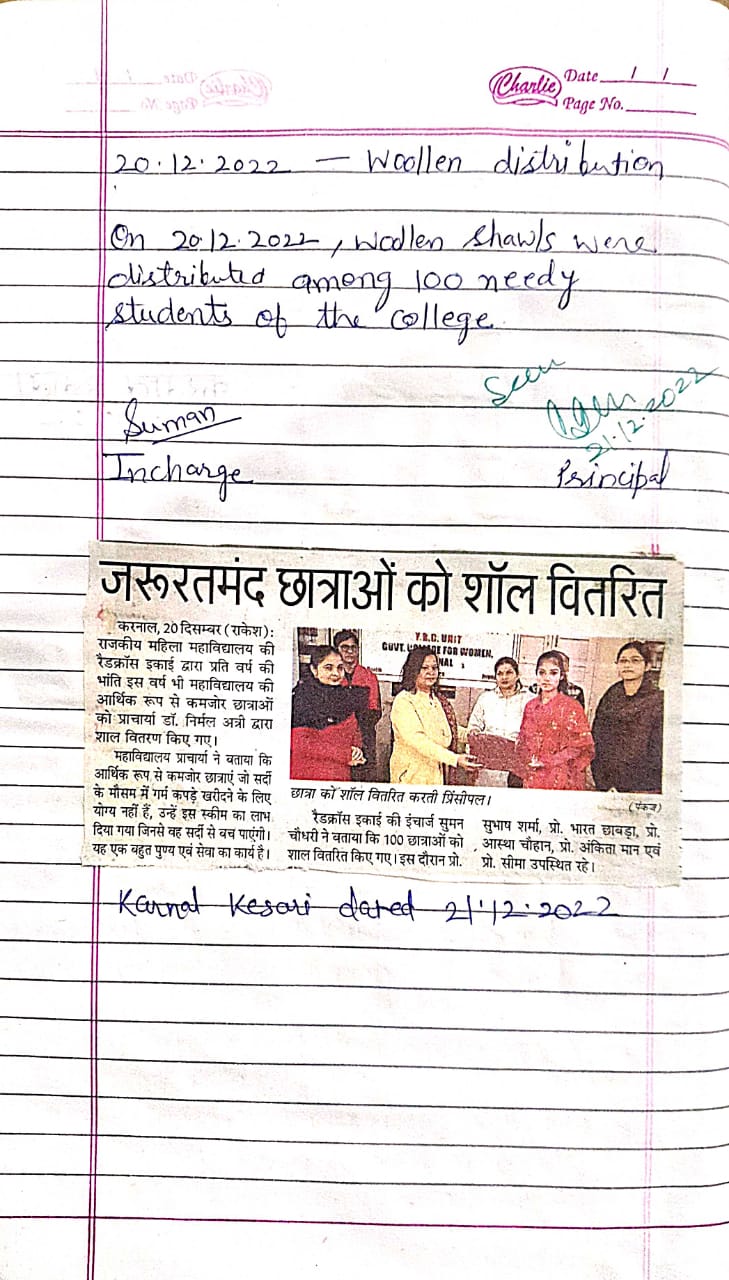 Charlie
Date / /
Page No.
20.12.2022 — Woollen distribution
On 20.12.2022, Woollen shawls were
distributed among 100 needy
students of the college.
Seen
21.12.2022
Suman
Incharge
Principal
जरूरतमंद छात्राओं को शॉल वितरित
करनाल, 20 दिसम्बर (राकेश):
राजकीय महिला महाविद्यालय की
रैडक्रॉस इकाई द्वारा प्रति वर्ष की
भांति इस वर्ष भी महाविद्यालय की
आर्थिक रूप से कमजोर छात्राओं
को प्राचार्या डॉ. निर्मल अत्री द्वारा
शाल वितरण किए गए।
महाविद्यालय प्राचार्या ने बताया कि
आर्थिक रूप से कमजोर छात्राएं जो सर्दी
के मौसम में गर्म कपड़े खरीदने के लिए
योग्य नहीं हैं, उन्हें इस स्कीम का लाभ
दिया गया जिनसे वह सर्दी से बच पाएंगी।
यह एक बहुत पुण्य एवं सेवा का कार्य है।
Y.R.C. UNIT
GUVT. FOR WOMEN,
NAL
छात्रा को शॉल वितरित करती प्रिंसीपल।
(पंकज)
रैडक्रॉस इकाई की इंचार्ज सुमन
चौधरी ने बताया कि 100 छात्राओं को
शाल वितरित किए गए। इस दौरान प्रो.
सुभाष शर्मा, प्रो. भारत छाबड़ा, प्रो.
आस्था चौहान, प्रो. अंकिता मान एवं
प्रो. सीमा उपस्थित रहे।
Karnal Kesari dated 21.12.2022